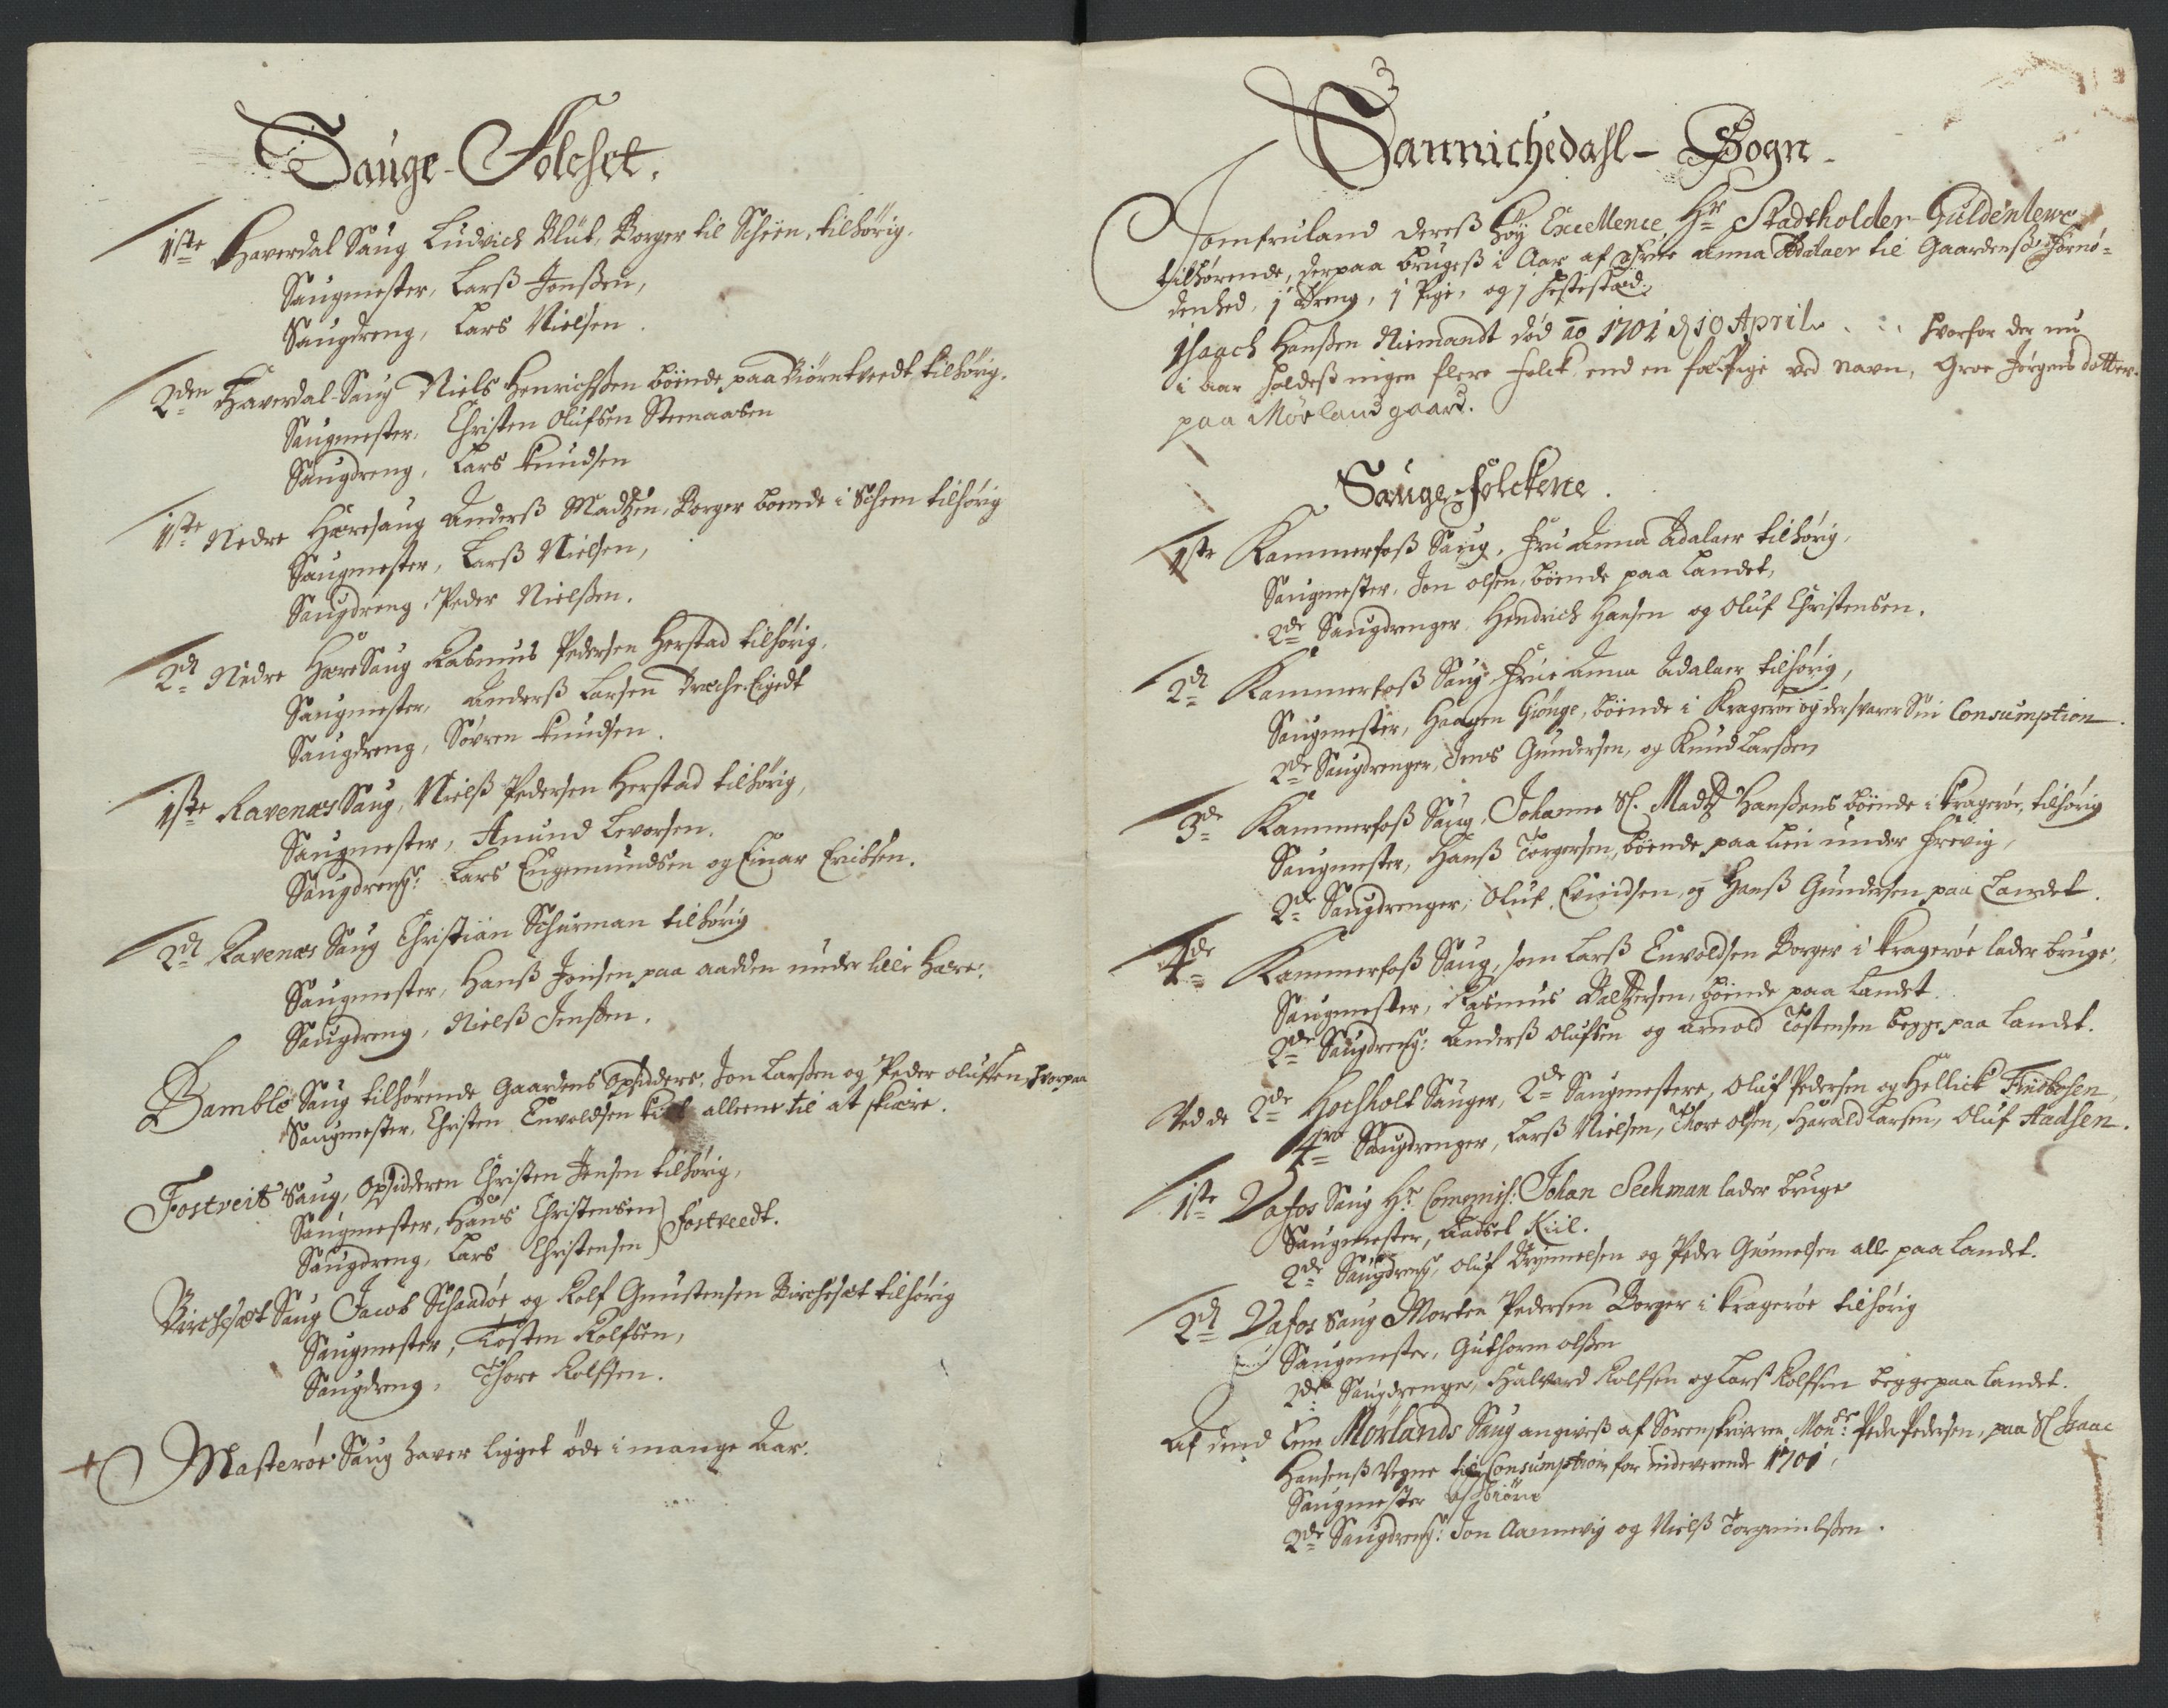 Sauge-Folchet.
1ste Haverdal Saug Ludvich Blüt, Borger til Scheen, tilhørig.
Saugmester, Larß Jonßen,
Saugdreng, Lars Nielsen.
2den Haverdal-Saug Niels Henrichßen boende paa Biørntvedt tilhørig.
Saugmester, Christen Olufsen Stemaasen
Saugdreng, Lars Knudsen
1ste Nedre Hæresaug Anderß Madtzen, Borger boende i Scheen tilhørig
Saugmester, Larß Nielsen,
Saugdreng, Peder Nielßen.
2d Nedre HæreSaug Rasmus Pedersen Herstad tilhørig,
Saugmester, Anderß Larsen
Saugdreng, Søvren Knudsen.
1ste Ravenæs Saug, Nielß Pedersen Herstad tilhørig,
Saugmester, Amund Levorsen.
Saugdreng: Lars Engemundsen og Einar Erichsen.
2d Ravenæs Saug Christian Schurman tilhørig
Saugmester, Hanß Jonsen paa aadden under lille Hære,
Saugdreng, Nielß Jenßen.
Bamble Saug tilhørende Gaardens Opsidders, Jon Larßen og Peder olufsen, hvorpaa
Saugmester, Christen Envoldsen alleene til at skiære.
Fostveit Saug, Opsidderen Christen Jensen tilhørig,
Saugmester, Hans Christensen
Saugdreng, Lars Christensen } Fostveedt.
Birchesæt Saug Jacob Schaadøe og Rolf Gunstensen Birchesæt tilhørig
Saugmester, Tosten Rolfsen,
Saugdreng, Thore Rolfsen.
Masterøe Saug haver ligget öde i mange Aar.
Sannichedahl-Sogn.
Jomfruland dereß Höy Excellence Hr Stadtholder Guldenlewe
tilhørende, derpaa brugeß i Aar af Frue Anna Adalaer til Gaardenß Fornö-
denhed, 1 Dreng, 1 Pige, og 1 Hestestaed.
Isaach Hanßen Niemandt död ao 1701 d 10 April. hvorfor der nu
i aar holdeß ingen flere folck, end en fæPige ved Navn, Groe Jørgens dotter.
paa Mørlaud gaard.
Sauge-folckene.
1ste Kammerfoß Saug, Fru Anna Adalaer tilhørig,
Saugmester, Jon olsen, boende paa Landet,
2de Saugdrenger, Hendrich Hansen og Oluf Christensen.
2d Kammerfoß Saug Frue Anna Adalaer tilhørig,
Saugmester, Haagen Giönge, boende i Kragerøe og der svarer Sin Consumption.
2de Saugdrenger, Jens Gundersen, og Knud Larßen
3de Kammerfoß Saug, Johanne Sl. Madtz Hanßens boende i Kragerøe, tilhørig
Saugmester, Hanß Torgersen, boende paa Lien under Frevig,
2de Saugdrenger, Oluf Evindsen, og Hanß Gundersen paa Landet.
4de Kammerfoß Saug, som Larß Envoldsen Borger i Kragerøe lader bruge,
Saugmester, Rasmus Baltzersen, boende paa Landet.
2de Saugdreng: Anderß Olufsen og Arnod Tostensen begge paa Landet.
Ved de 2de Hochholt Sauger, 2de Saugmestere, Oluf Pedersen og Hellick
4re Saugdrenger, Larß Nielsen, Thore olsen, Harald Larsen, Oluf Aadsen.
1ste Vafos Saug Hr Commis: Johan Sechman lader bruge
Saugmester, Aadsel Kiil.
2de Saugdreng, Oluf Brynnelsen og Peder Gunnelsen alle paa Landet.
2d Vafos Saug Morten Pedersen Borger i Kragerøe tilhørig
Saugmester, Guthorm olßen
2de Saugdrenge, Halvord Rolfsen og Lars Rolfsen begge paa Landet.
Af dend Eene Mørlands Saug angiveß af Sorenskriveren Monsr: Peder Pedersen, paa Sl Isaac
Hansenß Vegne til Consumption for indeverende 1701,
Saugmester Asbiörn
2de Saugdreng: Jon Aannevig og Nielß